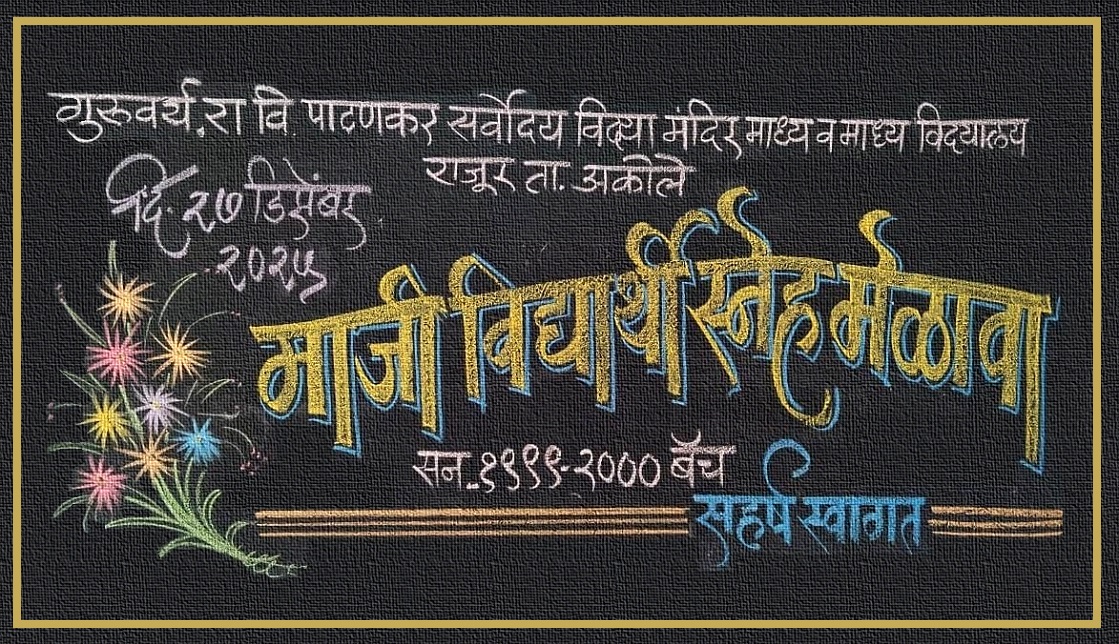 गुरूवर्य.रा वि. पाटणकर सर्वोदय विद्या मंदिर माध्य व माध्य विद्यालय
राजूर ता. अकोले
दि. २७ डिसेंबर
२०२५
माजी विद्यार्थी स्नेह मेळावा
सन.१९९९-२००० बॅच
सहर्ष स्वागत